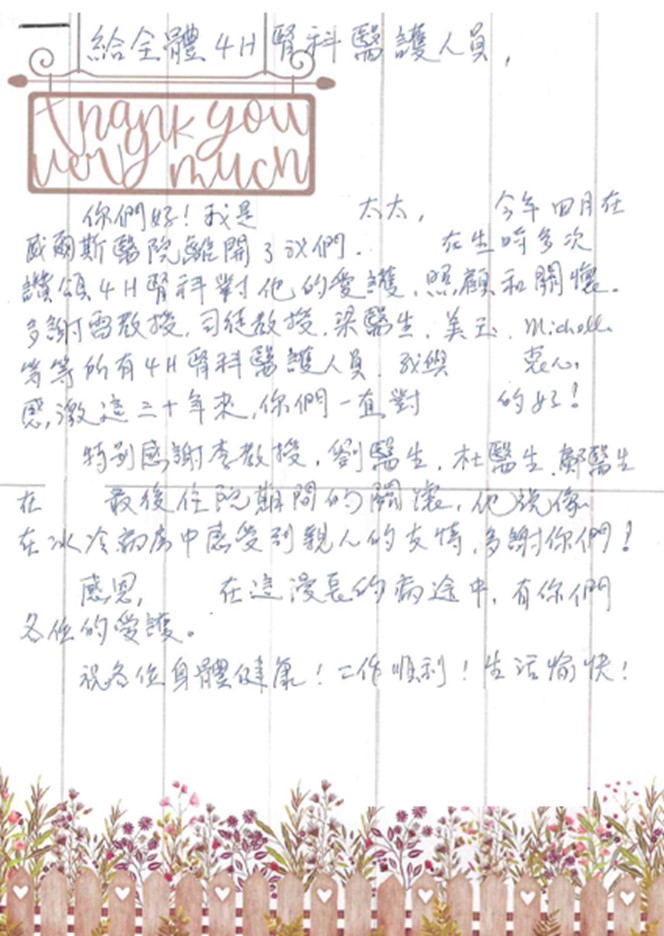 給全體4H腎科醫護人員,
thank you
very much
你們好！我是 太太, 今年四月在
威爾斯醫院離開了我們. 在生時多次
讚頌4H腎科對他的愛護,照顧和關懷。
多謝雷教授,司徒教授,梁醫生,美玉,Michelle
等等所有4H腎科醫護人員. 我與 衷心
感激這二十年來,你們一直對 的好！
特別感謝李教授,劉醫生,杜醫生,鄭醫生
在 最後住院期間的關懷,他說像
在冰冷病房中感受到親人的友情,多謝你們！
感恩, 在這漫長的病途中,有你們
各位的愛護。
祝各位身體健康！工作順利！生活愉快！